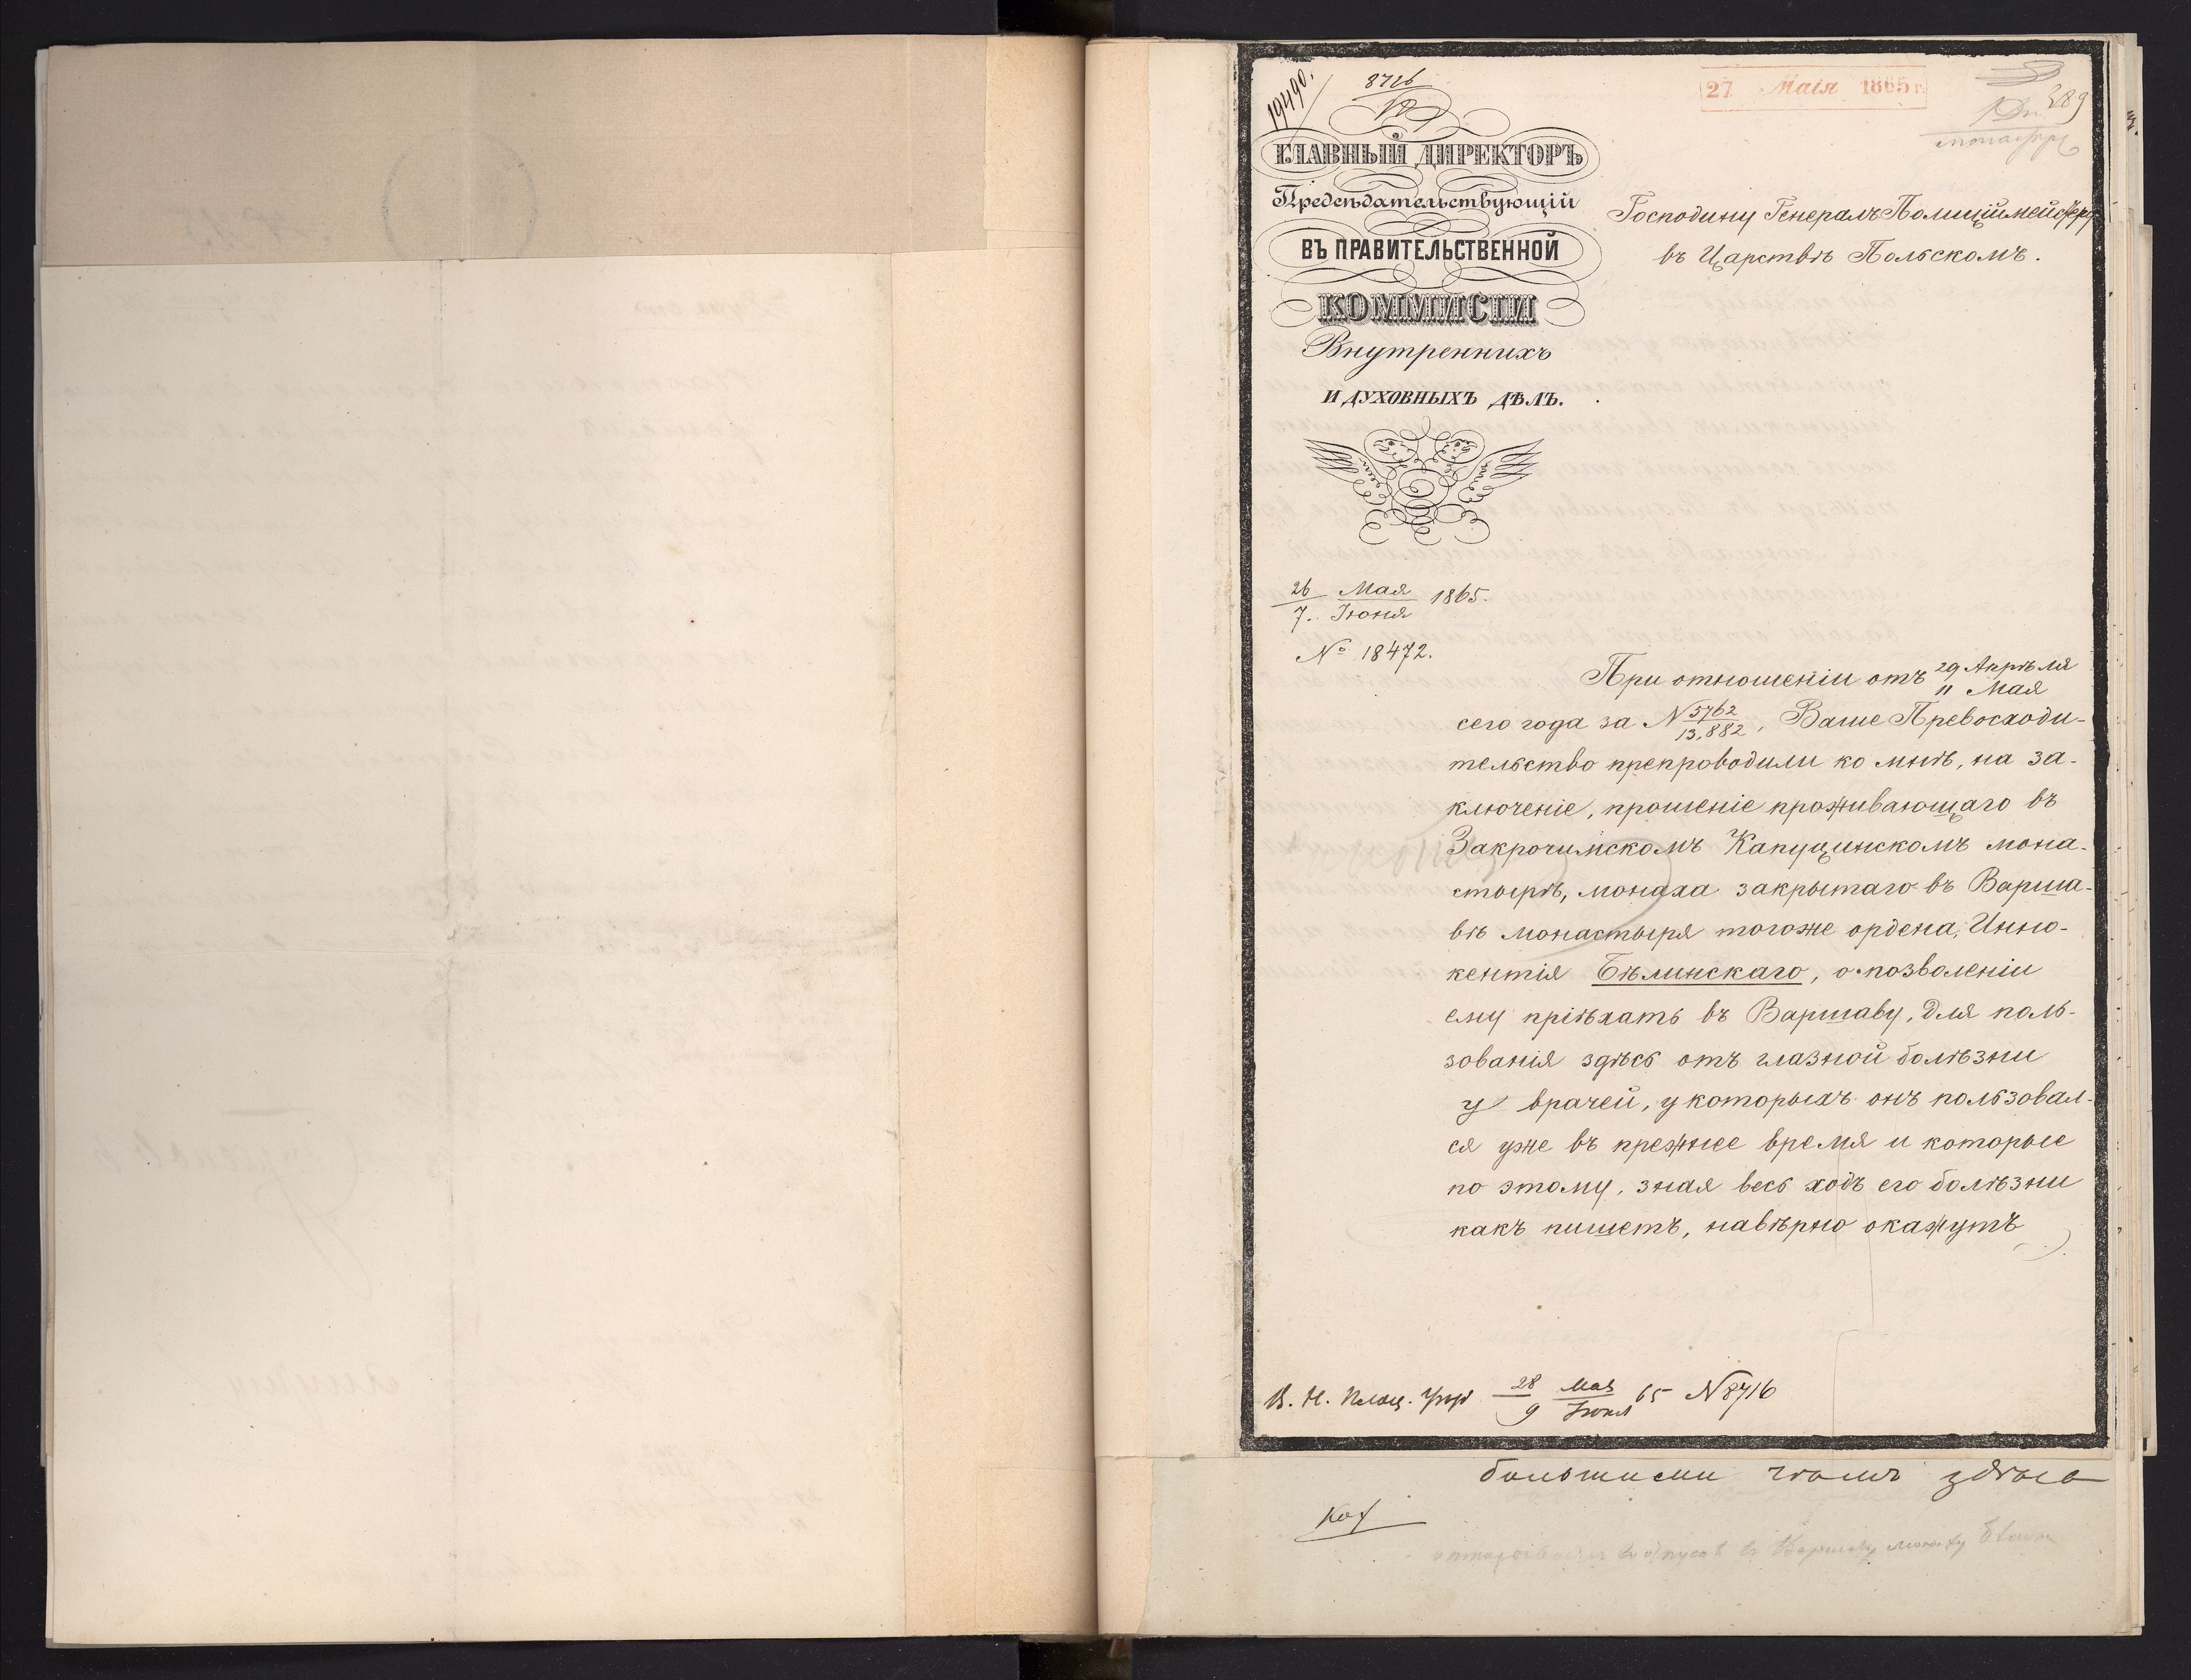 19490.
8716
27 Маія 1865 г.
289
ГЛАВНЫЙ ДИРЕКТОРЪ
Предсѣдательствующій
ВЪ ПРАВИТЕЛЬСТВЕННОЙ
КОММИСІИ
Внутреннихъ
И ДУХОВНЫХЪ ДѢЛЪ.
Господину Генералъ Полиціймейстеру
въ Царствѣ Польскомъ.
26/7 Мая/Іюня 1865.
№ 18472.
При отношеніи отъ 29 Апрѣля/11 Мая
сего года за N 5762/13,882, Ваше Превосходи-
тельство препроводили ко мнѣ, на за-
ключеніе, прошеніе проживающаго въ
Закрочимскомъ Капуцинскомъ мона-
стырѣ, монаха закрытаго въ Варша-
вѣ монастыря тогоже ордена, Инно-
кентія Бѣлинскаго, о позволеніи
ему пріѣхать въ Варшаву, для поль-
зованія здѣсь отъ глазной болѣзни
у врачей, у которыхъ онъ пользовал-
ся уже въ прежнее время и которые
по этому, зная весь ходъ его болѣзни
какъ пишетъ, навѣрно окажутъ
28/9 Мая/Іюня 65 N 8716
здѣсь